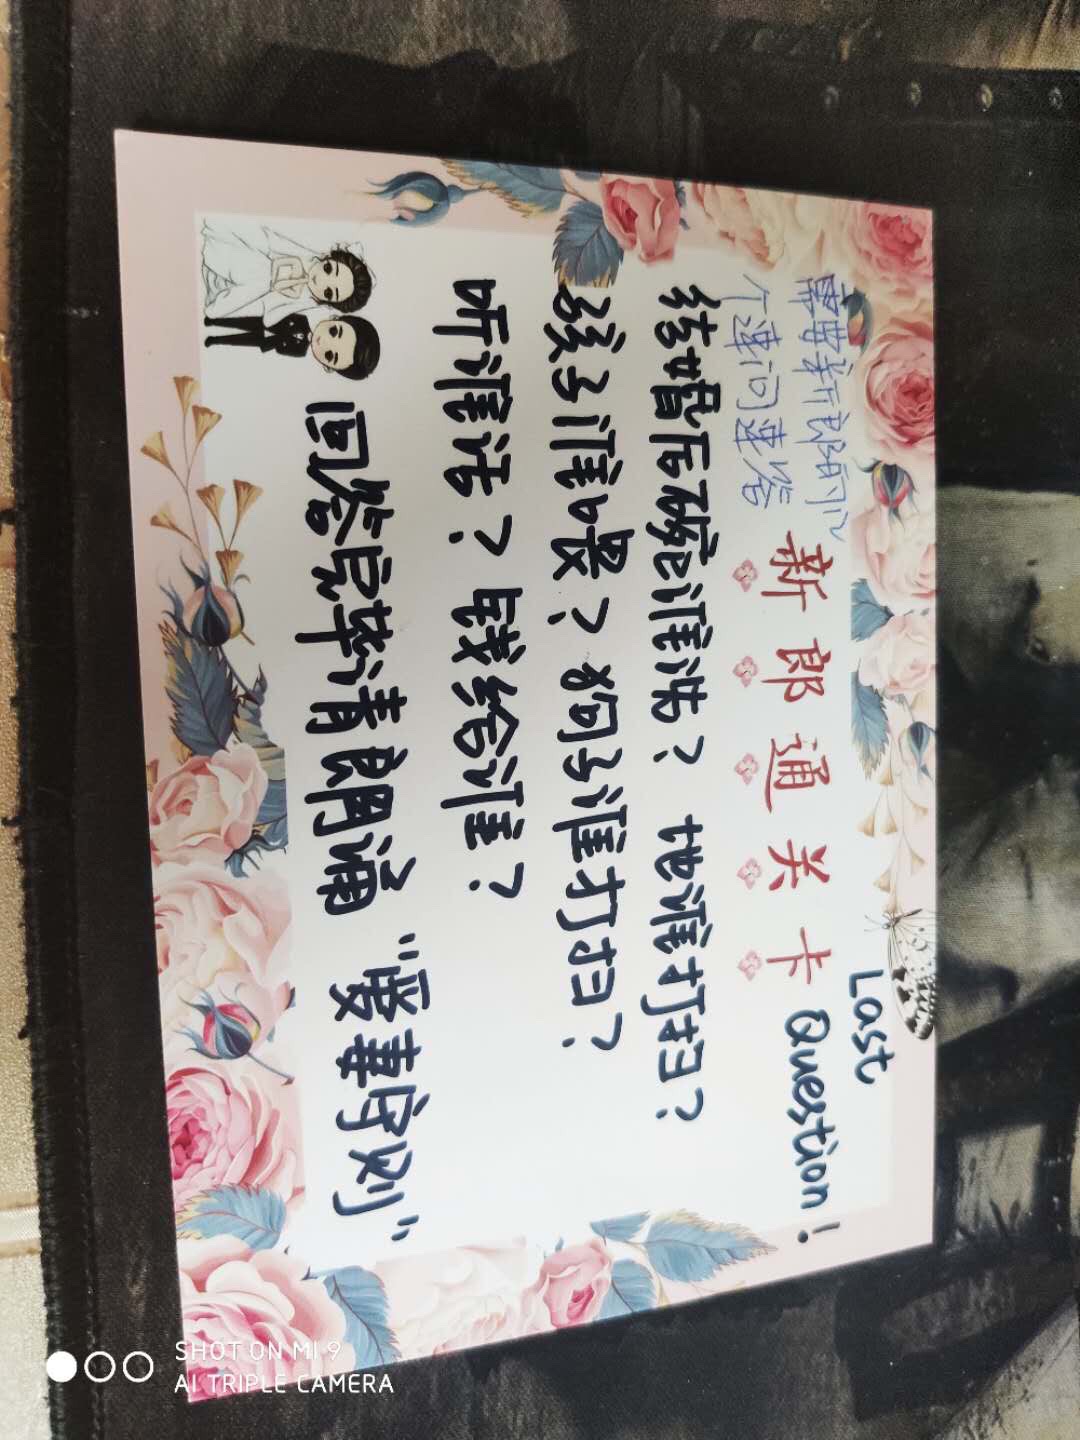 Last
Question!
新郎通关卡
需要新郎的
个速问速答
结婚后碗谁洗？地谁打扫？
孩子谁喂？狗子谁打扫？
听谁话？钱给谁？
回答完毕请朗诵“爱妻守则”
SHOT ON MI 9
AI TRIPLE CAMERA